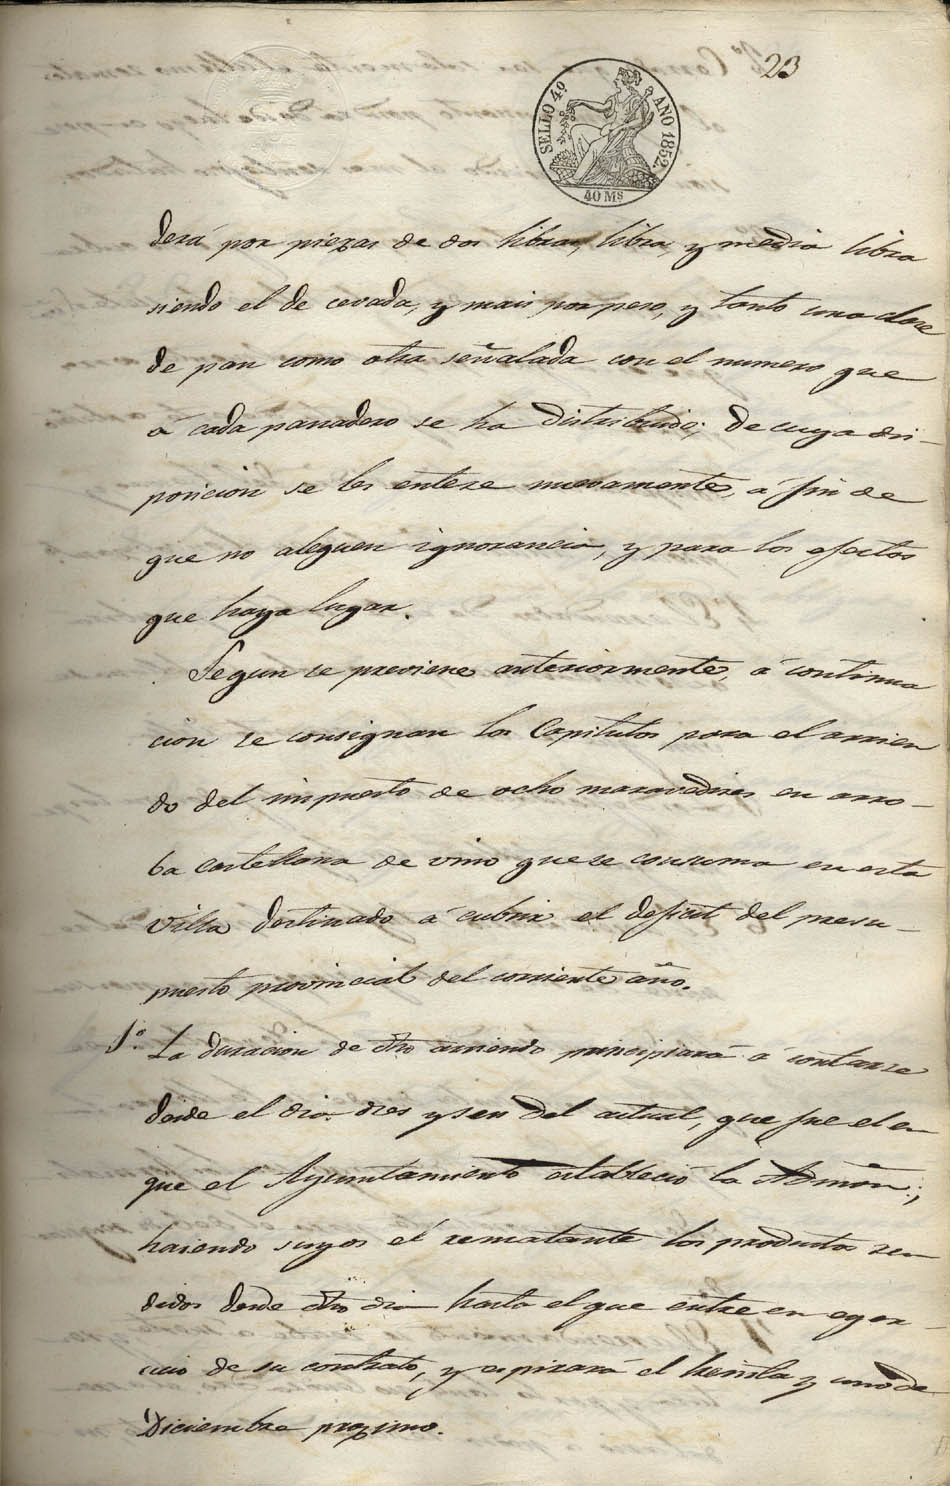 23
SELLO 4º AÑO 1852.
40 Ms
derá por piezas de dos libras, libra, y media libra
siendo el de cevada, y mais por peso, y tanto una clase
de pan como otra señalada con el numero que
á cada panadero se ha distribuido; de cuya dis-
posicion se les entere nuevamente, á fin de
que no aleguen ignorancia, y para los efectos
que haya lugar.
Segun se previene anteriormente, á continua
cion se consignan los Capitulos para el arrien
do del impuesto de ocho maravedises en arro-
ba castellana de vino que se consuma en esta
Villa destinado á cubrir el deficit del presu-
puesto provincial del corriente año.
1.º La duracion de dho arriendo principiará á contarse
desde el dia dies y seis del actual, que fue el en
que el Ayuntamiento estableció la Admon.;
haciendo suyos el rematante los productos ren
didos desde dho dia hasta el que entre en eger-
cicio de su contrato, y espirará el treinta y uno de
Diciembre proximo.